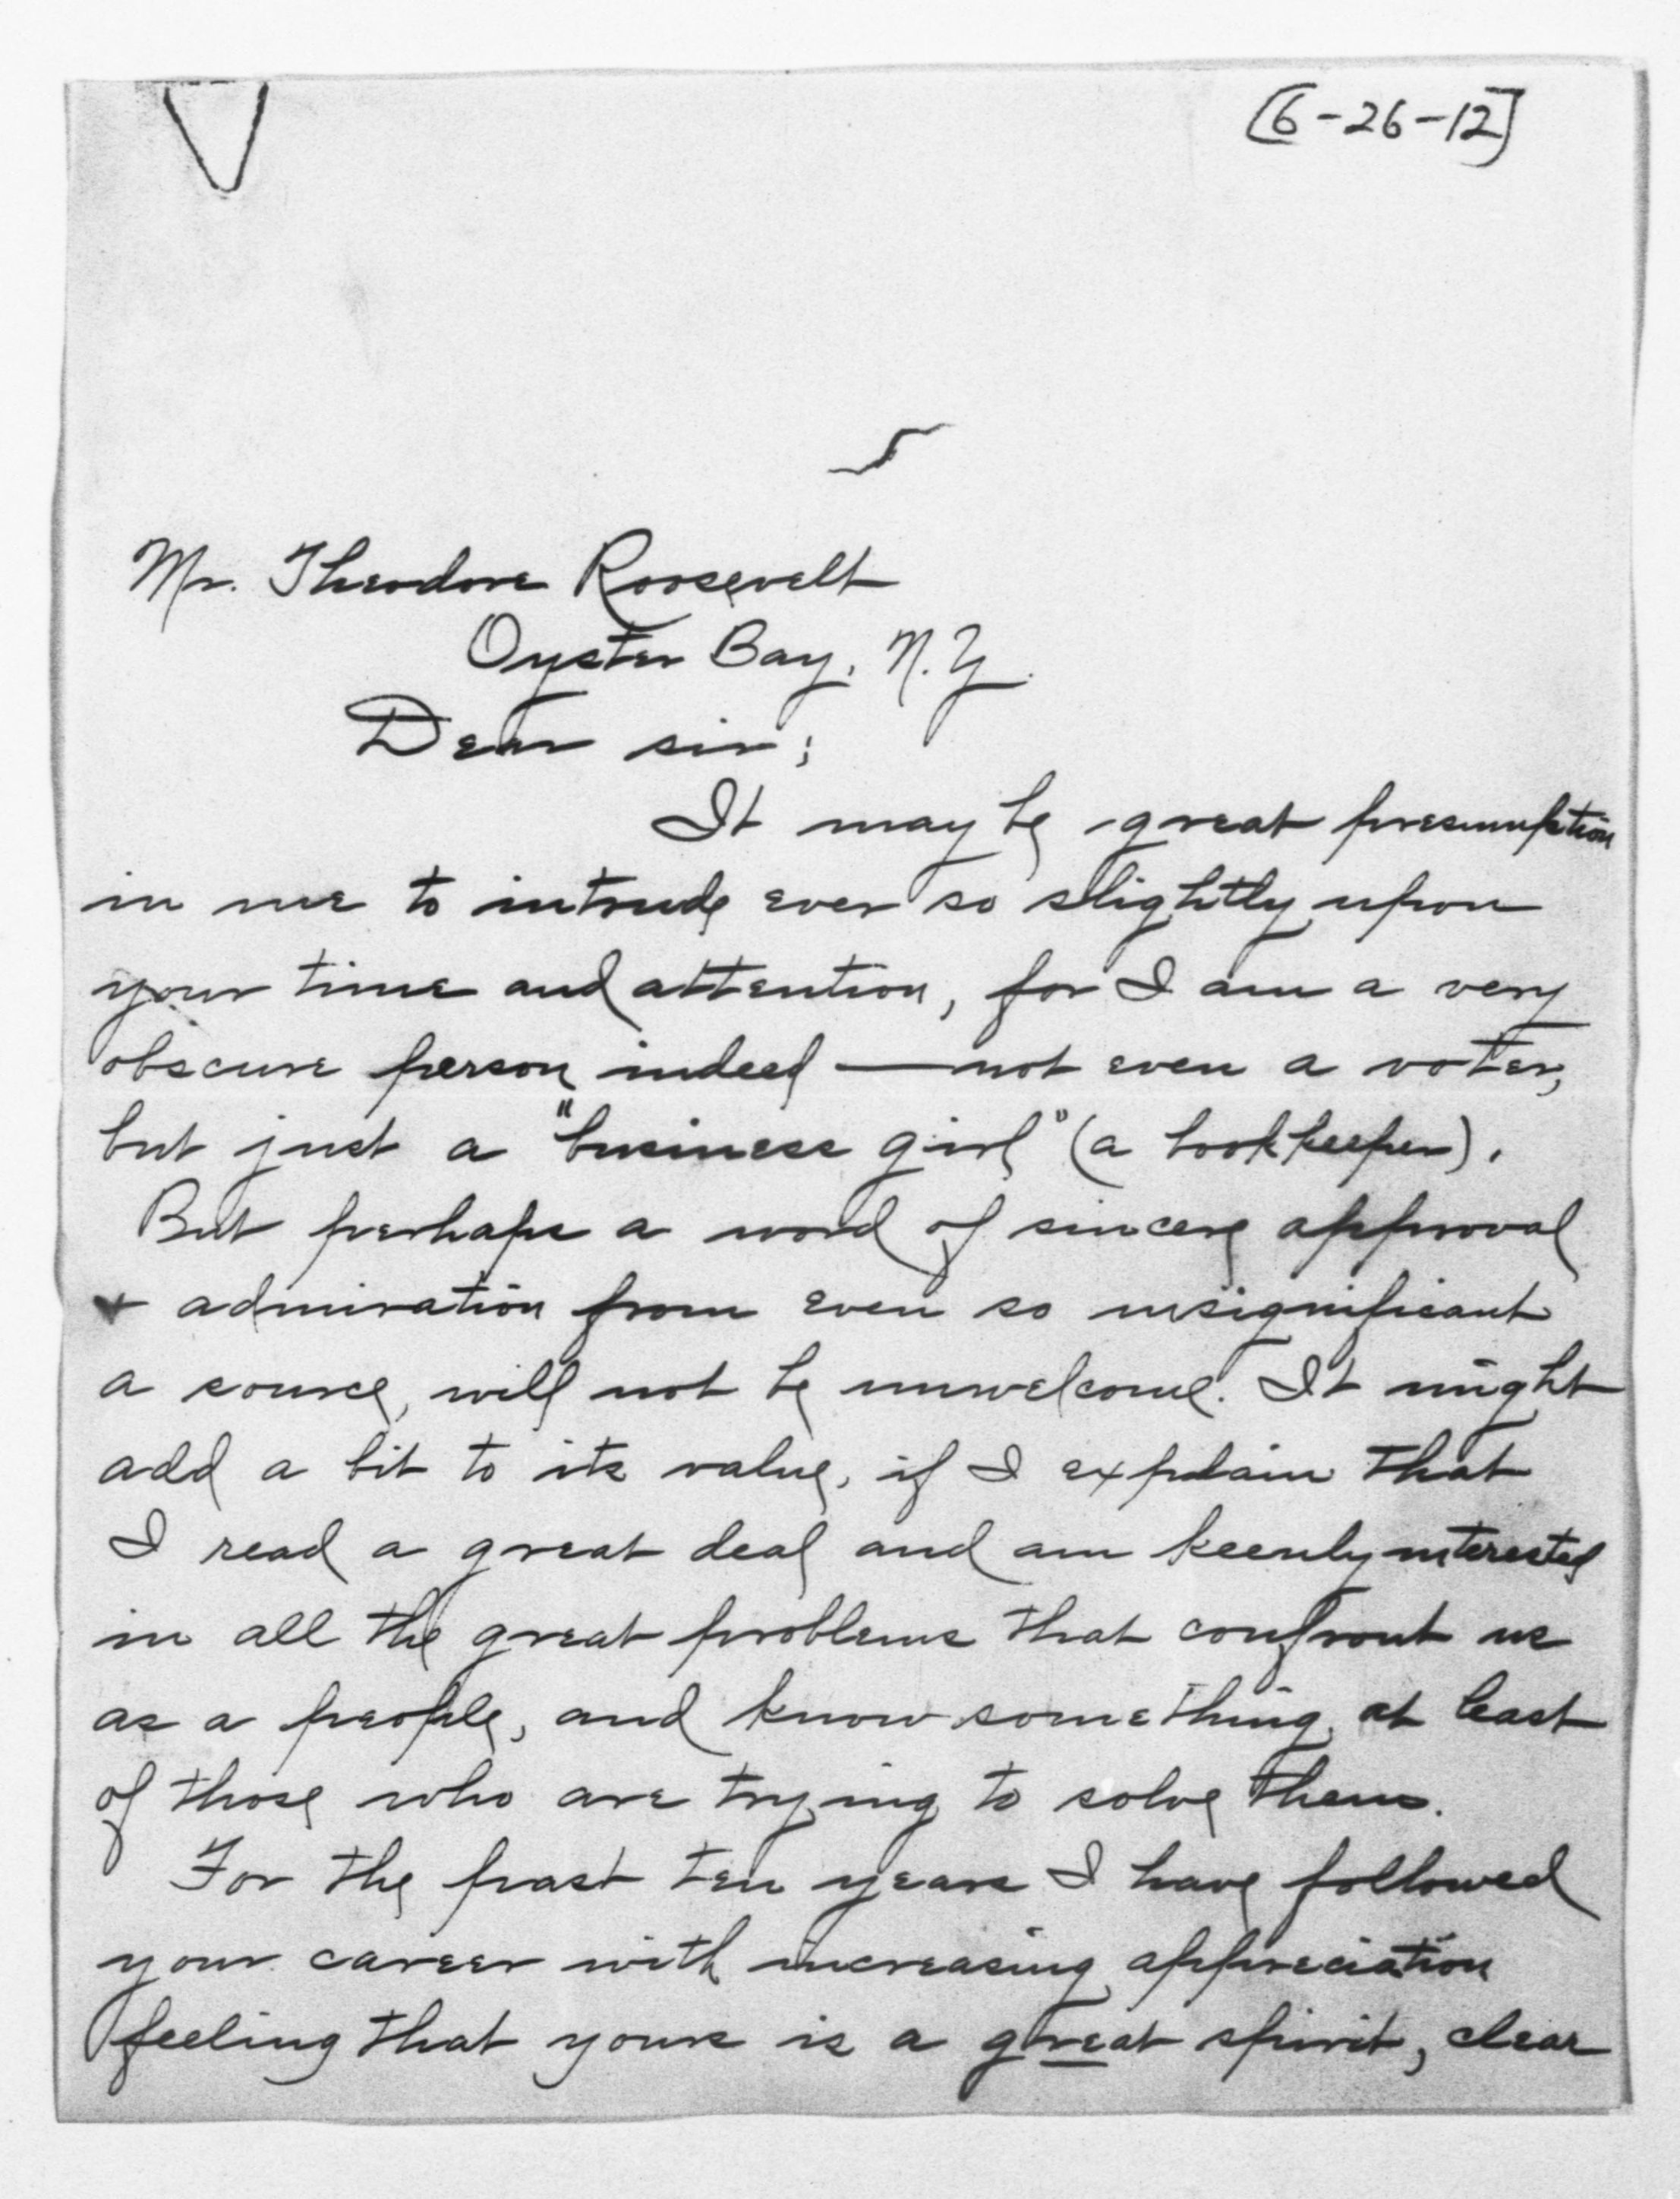 [6-26-12]
Mr. Theodore Roosevelt
Oyster Bay, N.Y.
Dear sir;
It may be great presumption
in me to intrude ever so slightly upon
your time and attention, for I am a very
obscure person indeed — not even a voter,
but just a "business girl" (a bookkeeper).
But perhaps a word of sincere approval
+ admiration from even so insignificant
a source, will not be unwelcome. It might
add a bit to its value, if I explain that
I read a great deal and am keenly interested
in all the great problems that confront us
as a people, and know something at least
of those who are trying to solve them.
For the past ten years I have followed
your career with increasing appreciation
feeling that yours is a great spirit, clear